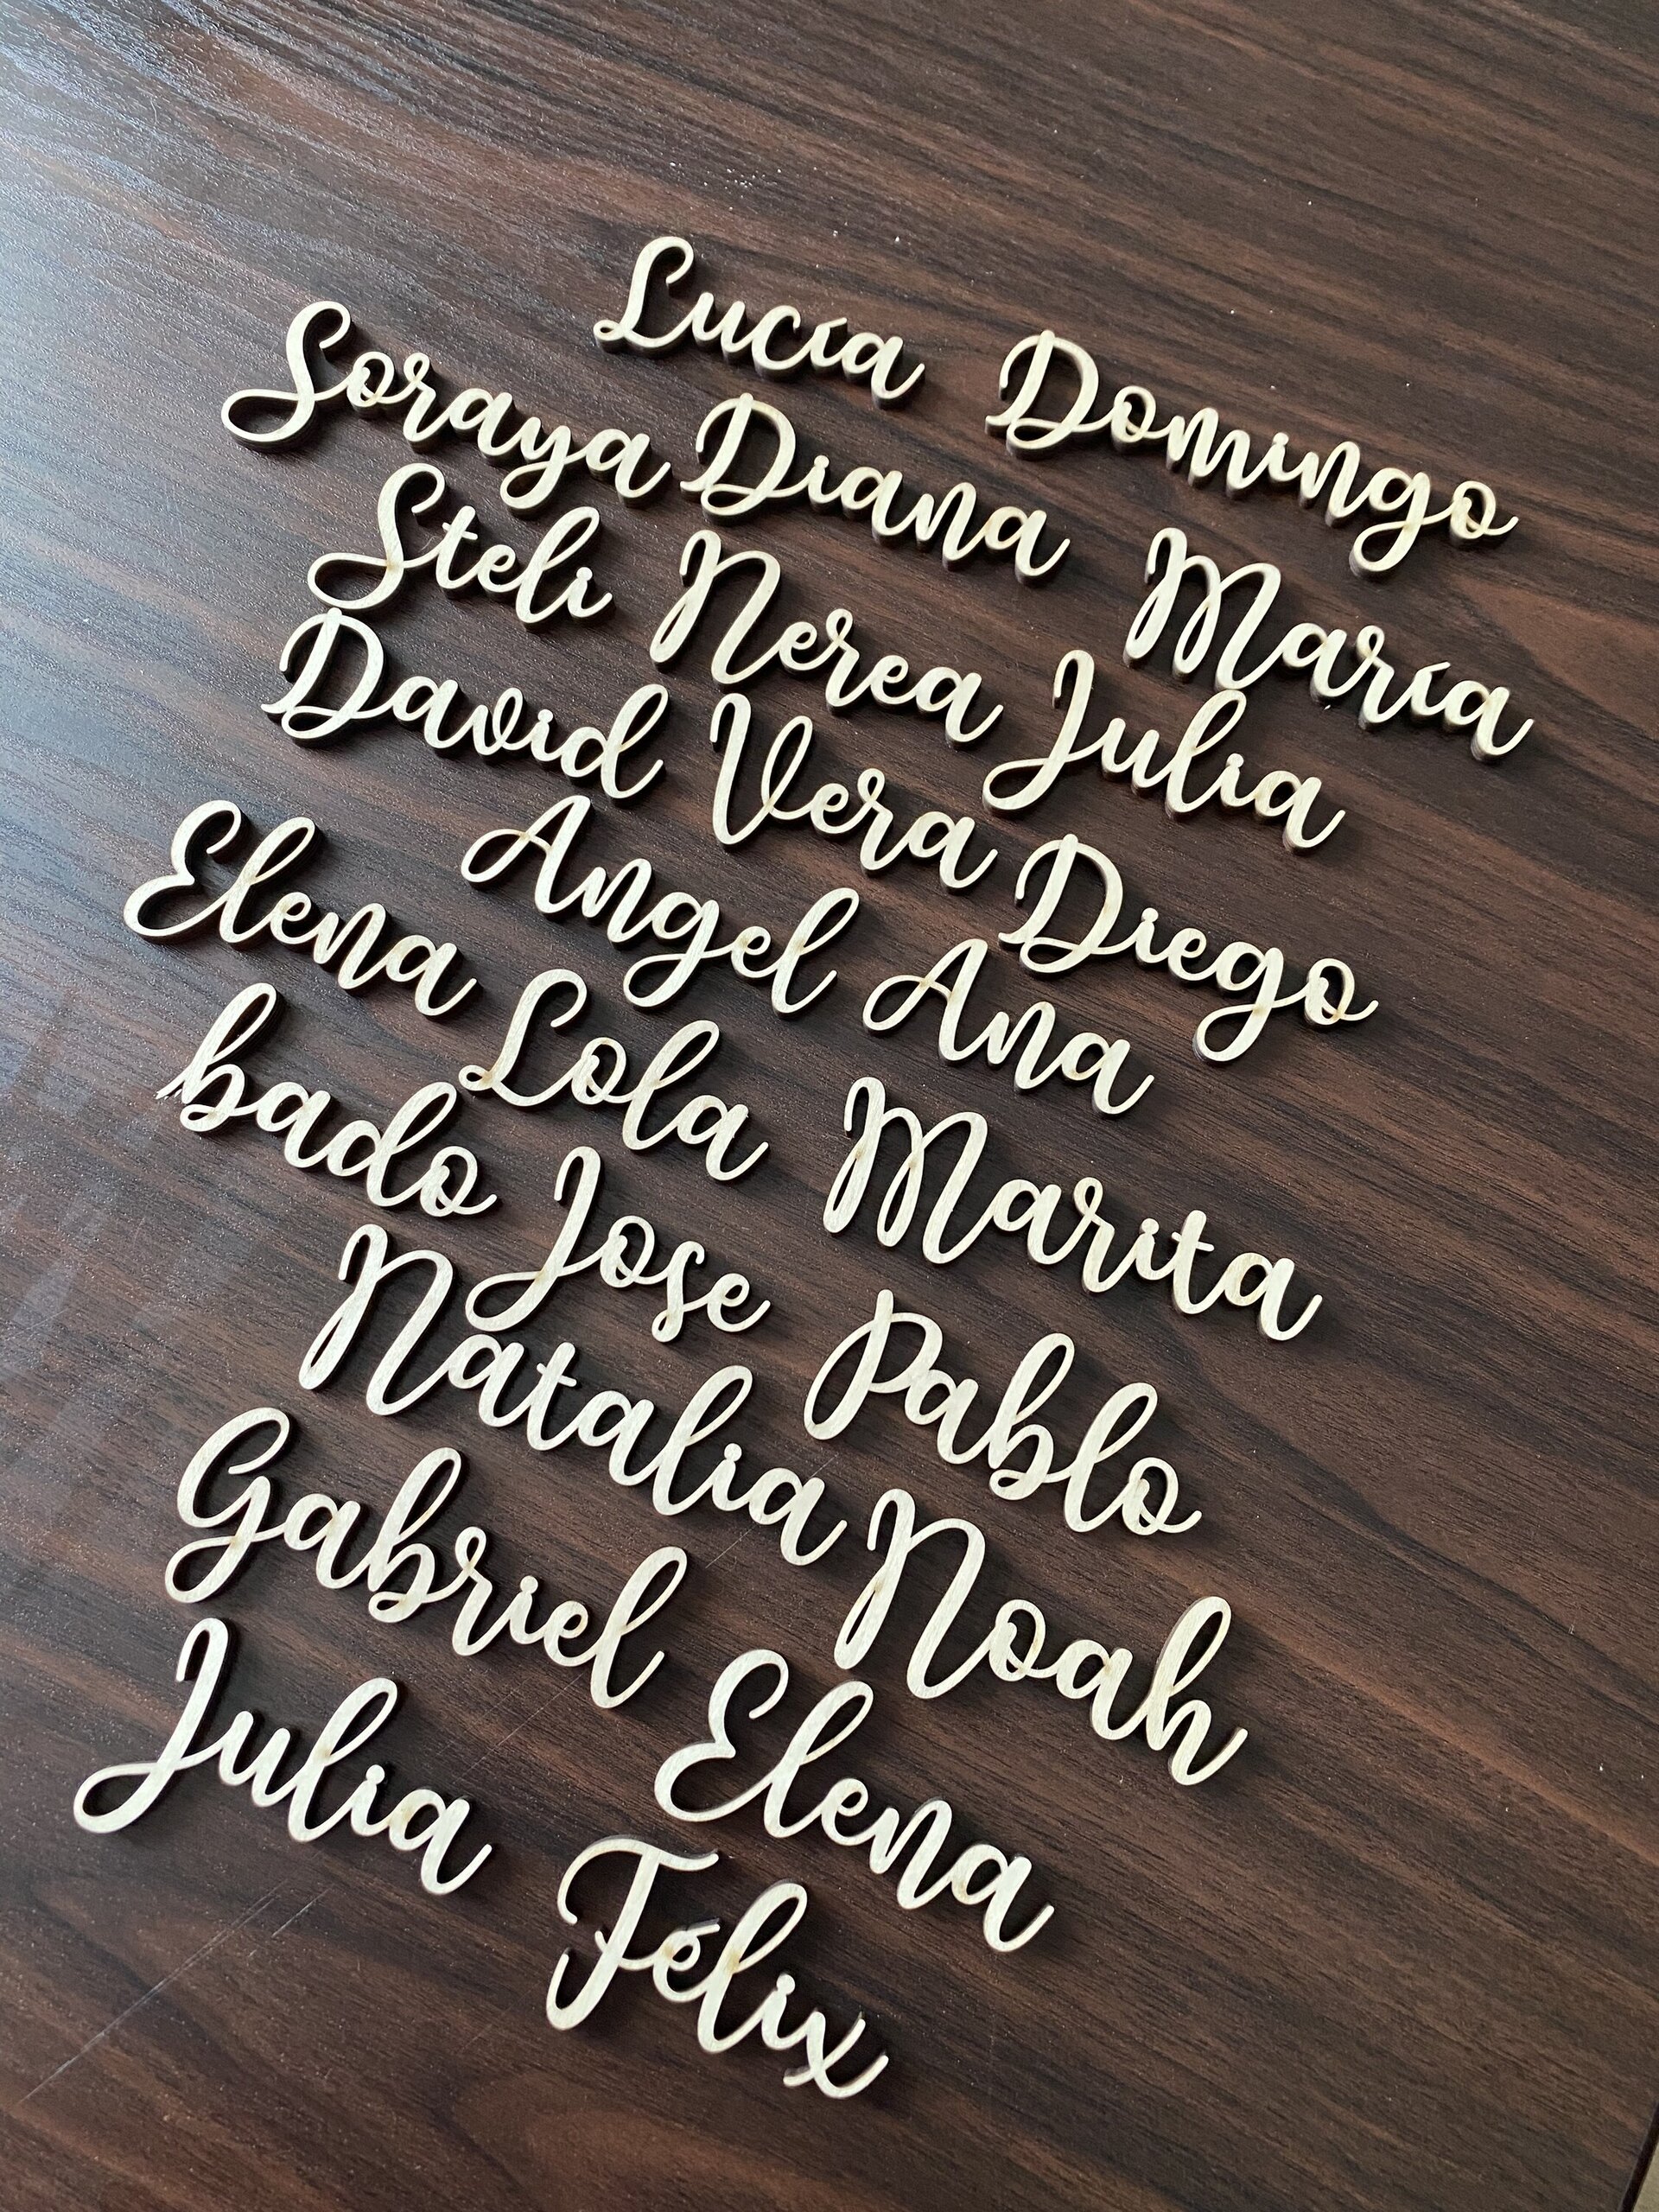 Lucía Domingo
Soraya Diana María
Steli Nerea Julia
David Vera Diego
Angel Ana
Elena Lola Marita
bado Jose Pablo
Natalia Noah
Gabriel Elena
Julia Félix